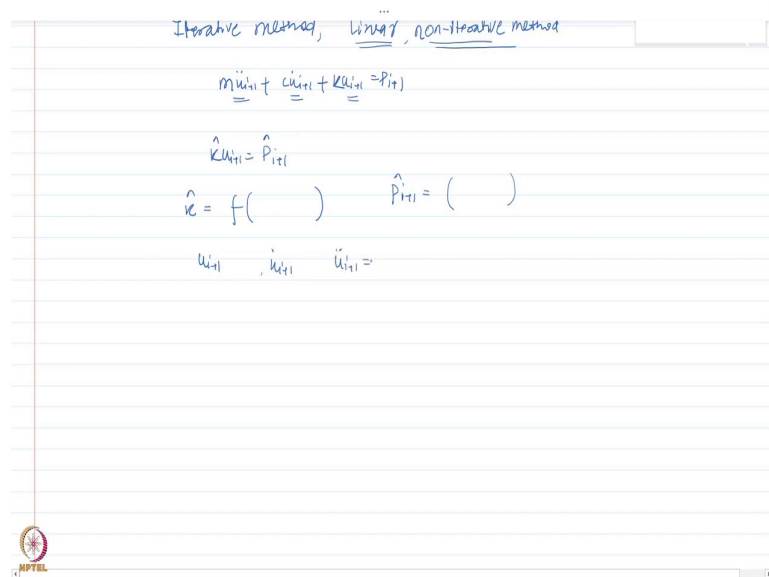 ...
Iterative method, linear, non-iterative method
mü_{i+1} + cu̇_{i+1} + ku_{i+1} = P_{i+1}
k̂u_{i+1} = P̂_{i+1}
k̂ = f( ) P̂_{i+1} = ( )
u_{i+1} , u̇_{i+1} ü_{i+1} =
NPTEL